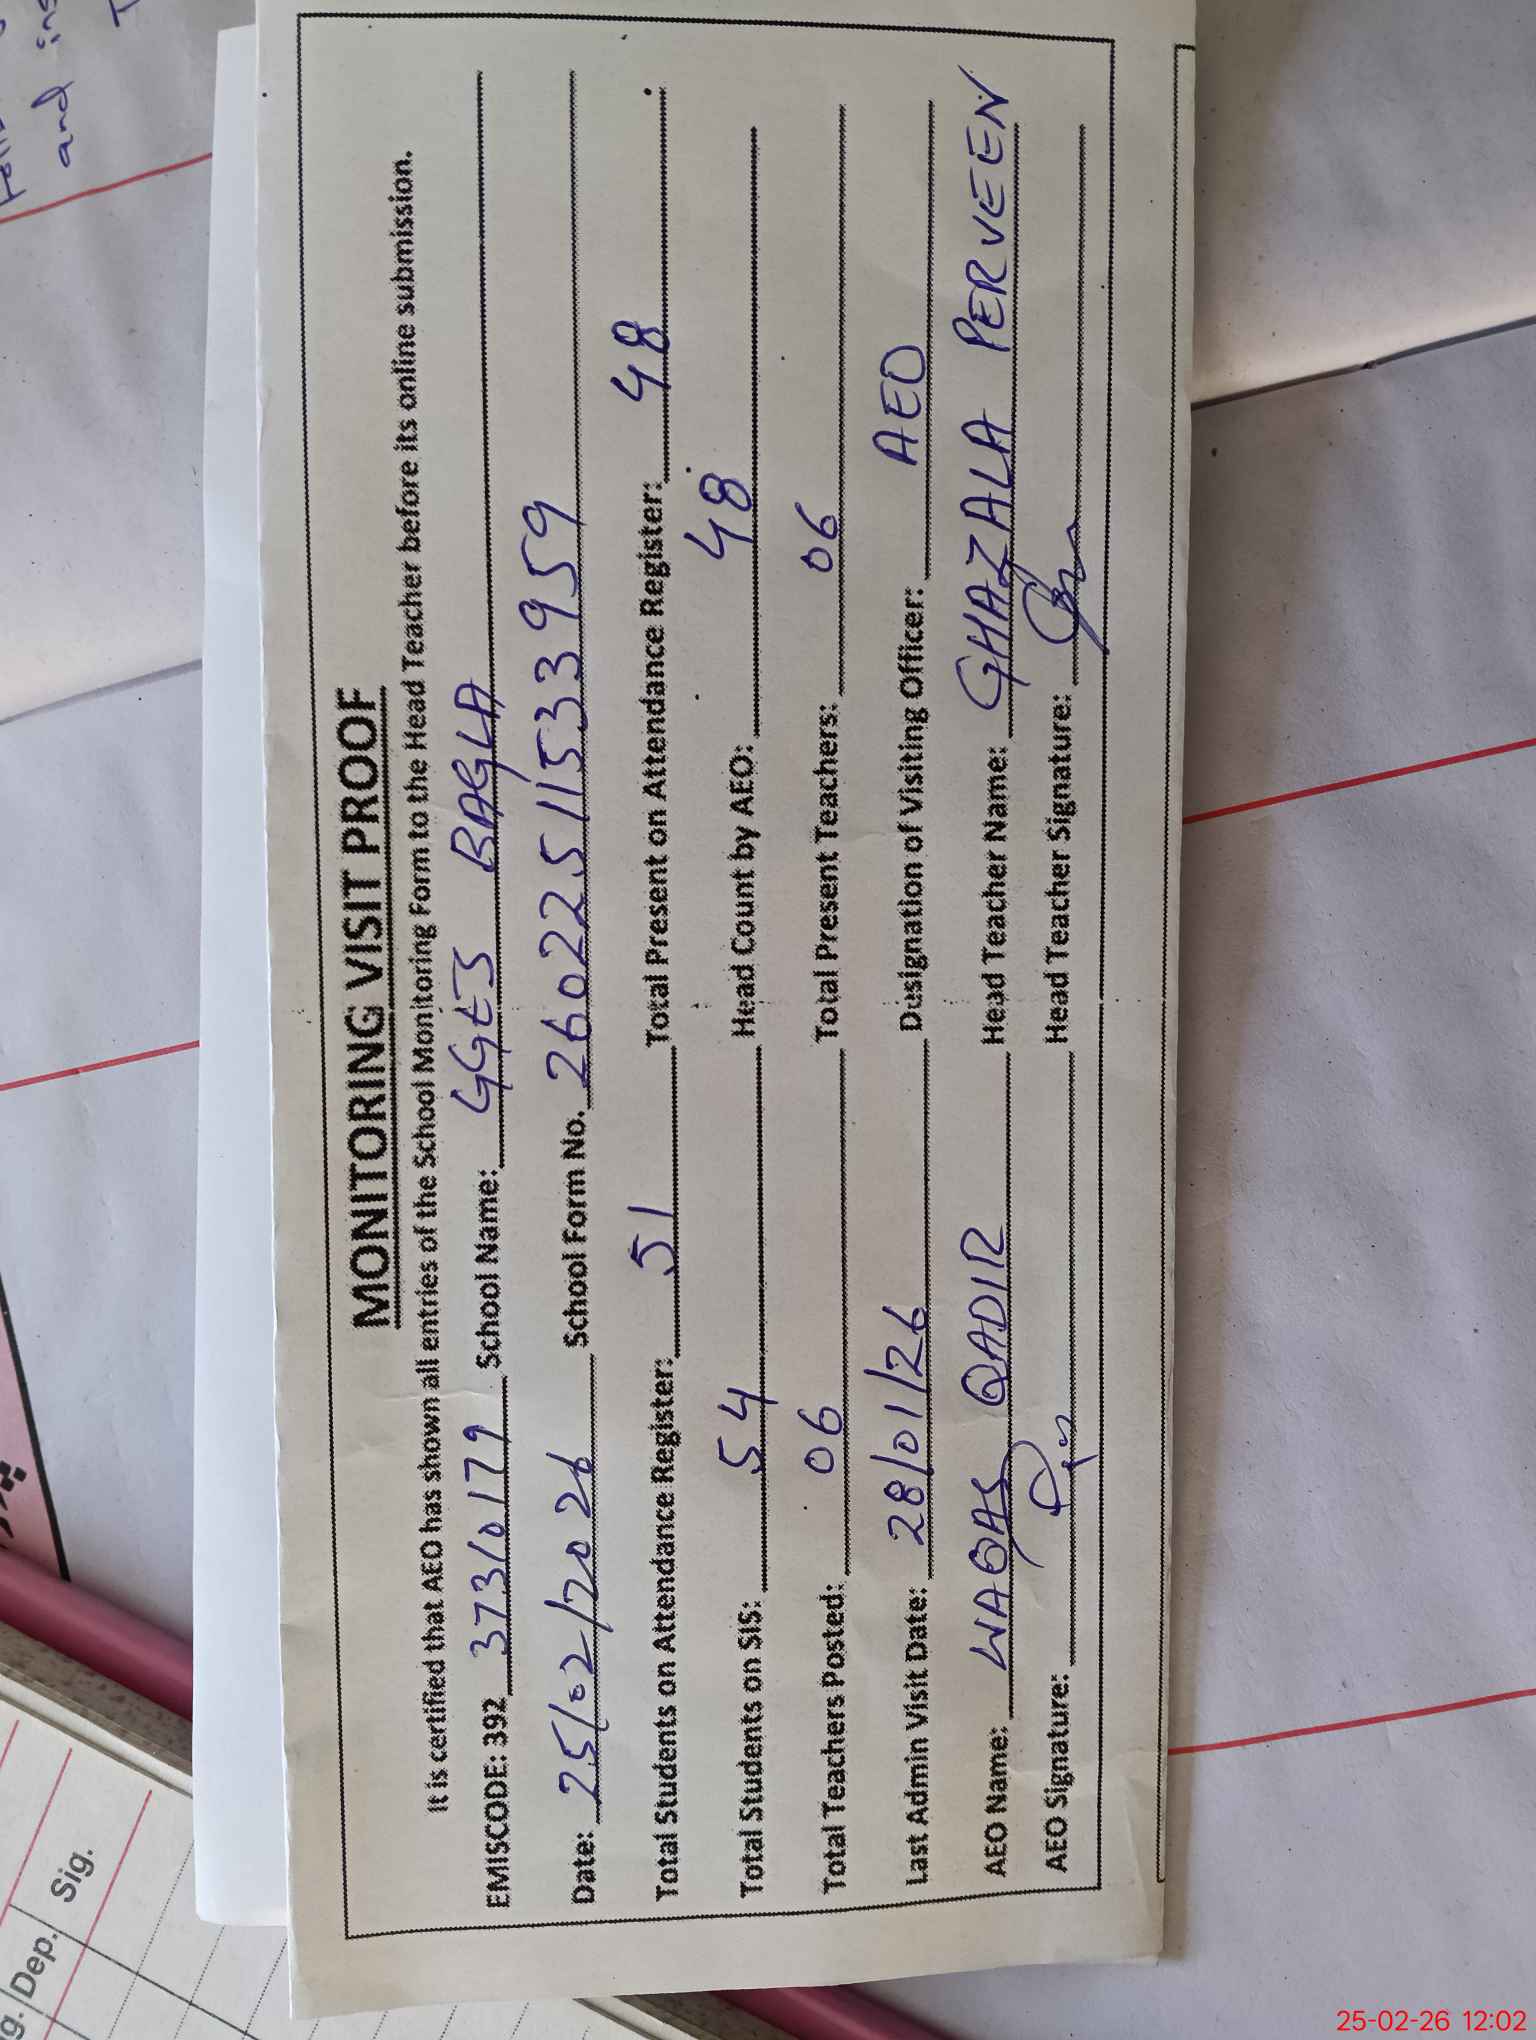 MONITORING VISIT PROOF
It is certified that AEO has shown all entries of the School Monitoring Form to the Head Teacher before its online submission.
EMISCODE: 392 37310179 School Name: GGES BAGLA
Date: 25/02/2026 School Form No. 260225115333959
Total Students on Attendance Register: 51 Total Present on Attendance Register: 48
Total Students on SIS: 54 Head Count by AEO: 48
Total Teachers Posted: 06 Total Present Teachers: 06
Last Admin Visit Date: 28/01/26 Designation of Visiting Officer: AEO
AEO Name: WAQAS QADIR Head Teacher Name: GHAZALA PERVEEN
AEO Signature: Head Teacher Signature:
and
Dep. Sig.
25-02-26 12:02